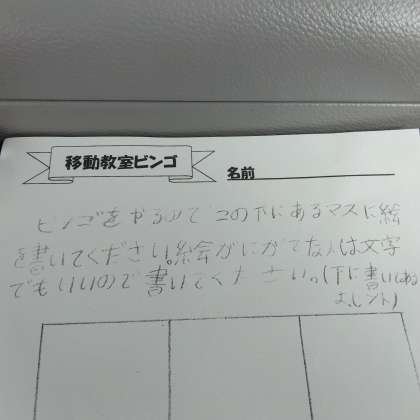 移動教室ビンゴ
名前
ビンゴをやるのでこの下にあるマスに絵
を書いてください。絵がにがてな人は文字
でもいいので書いてください。(下に書いてある
よ。ヒント)